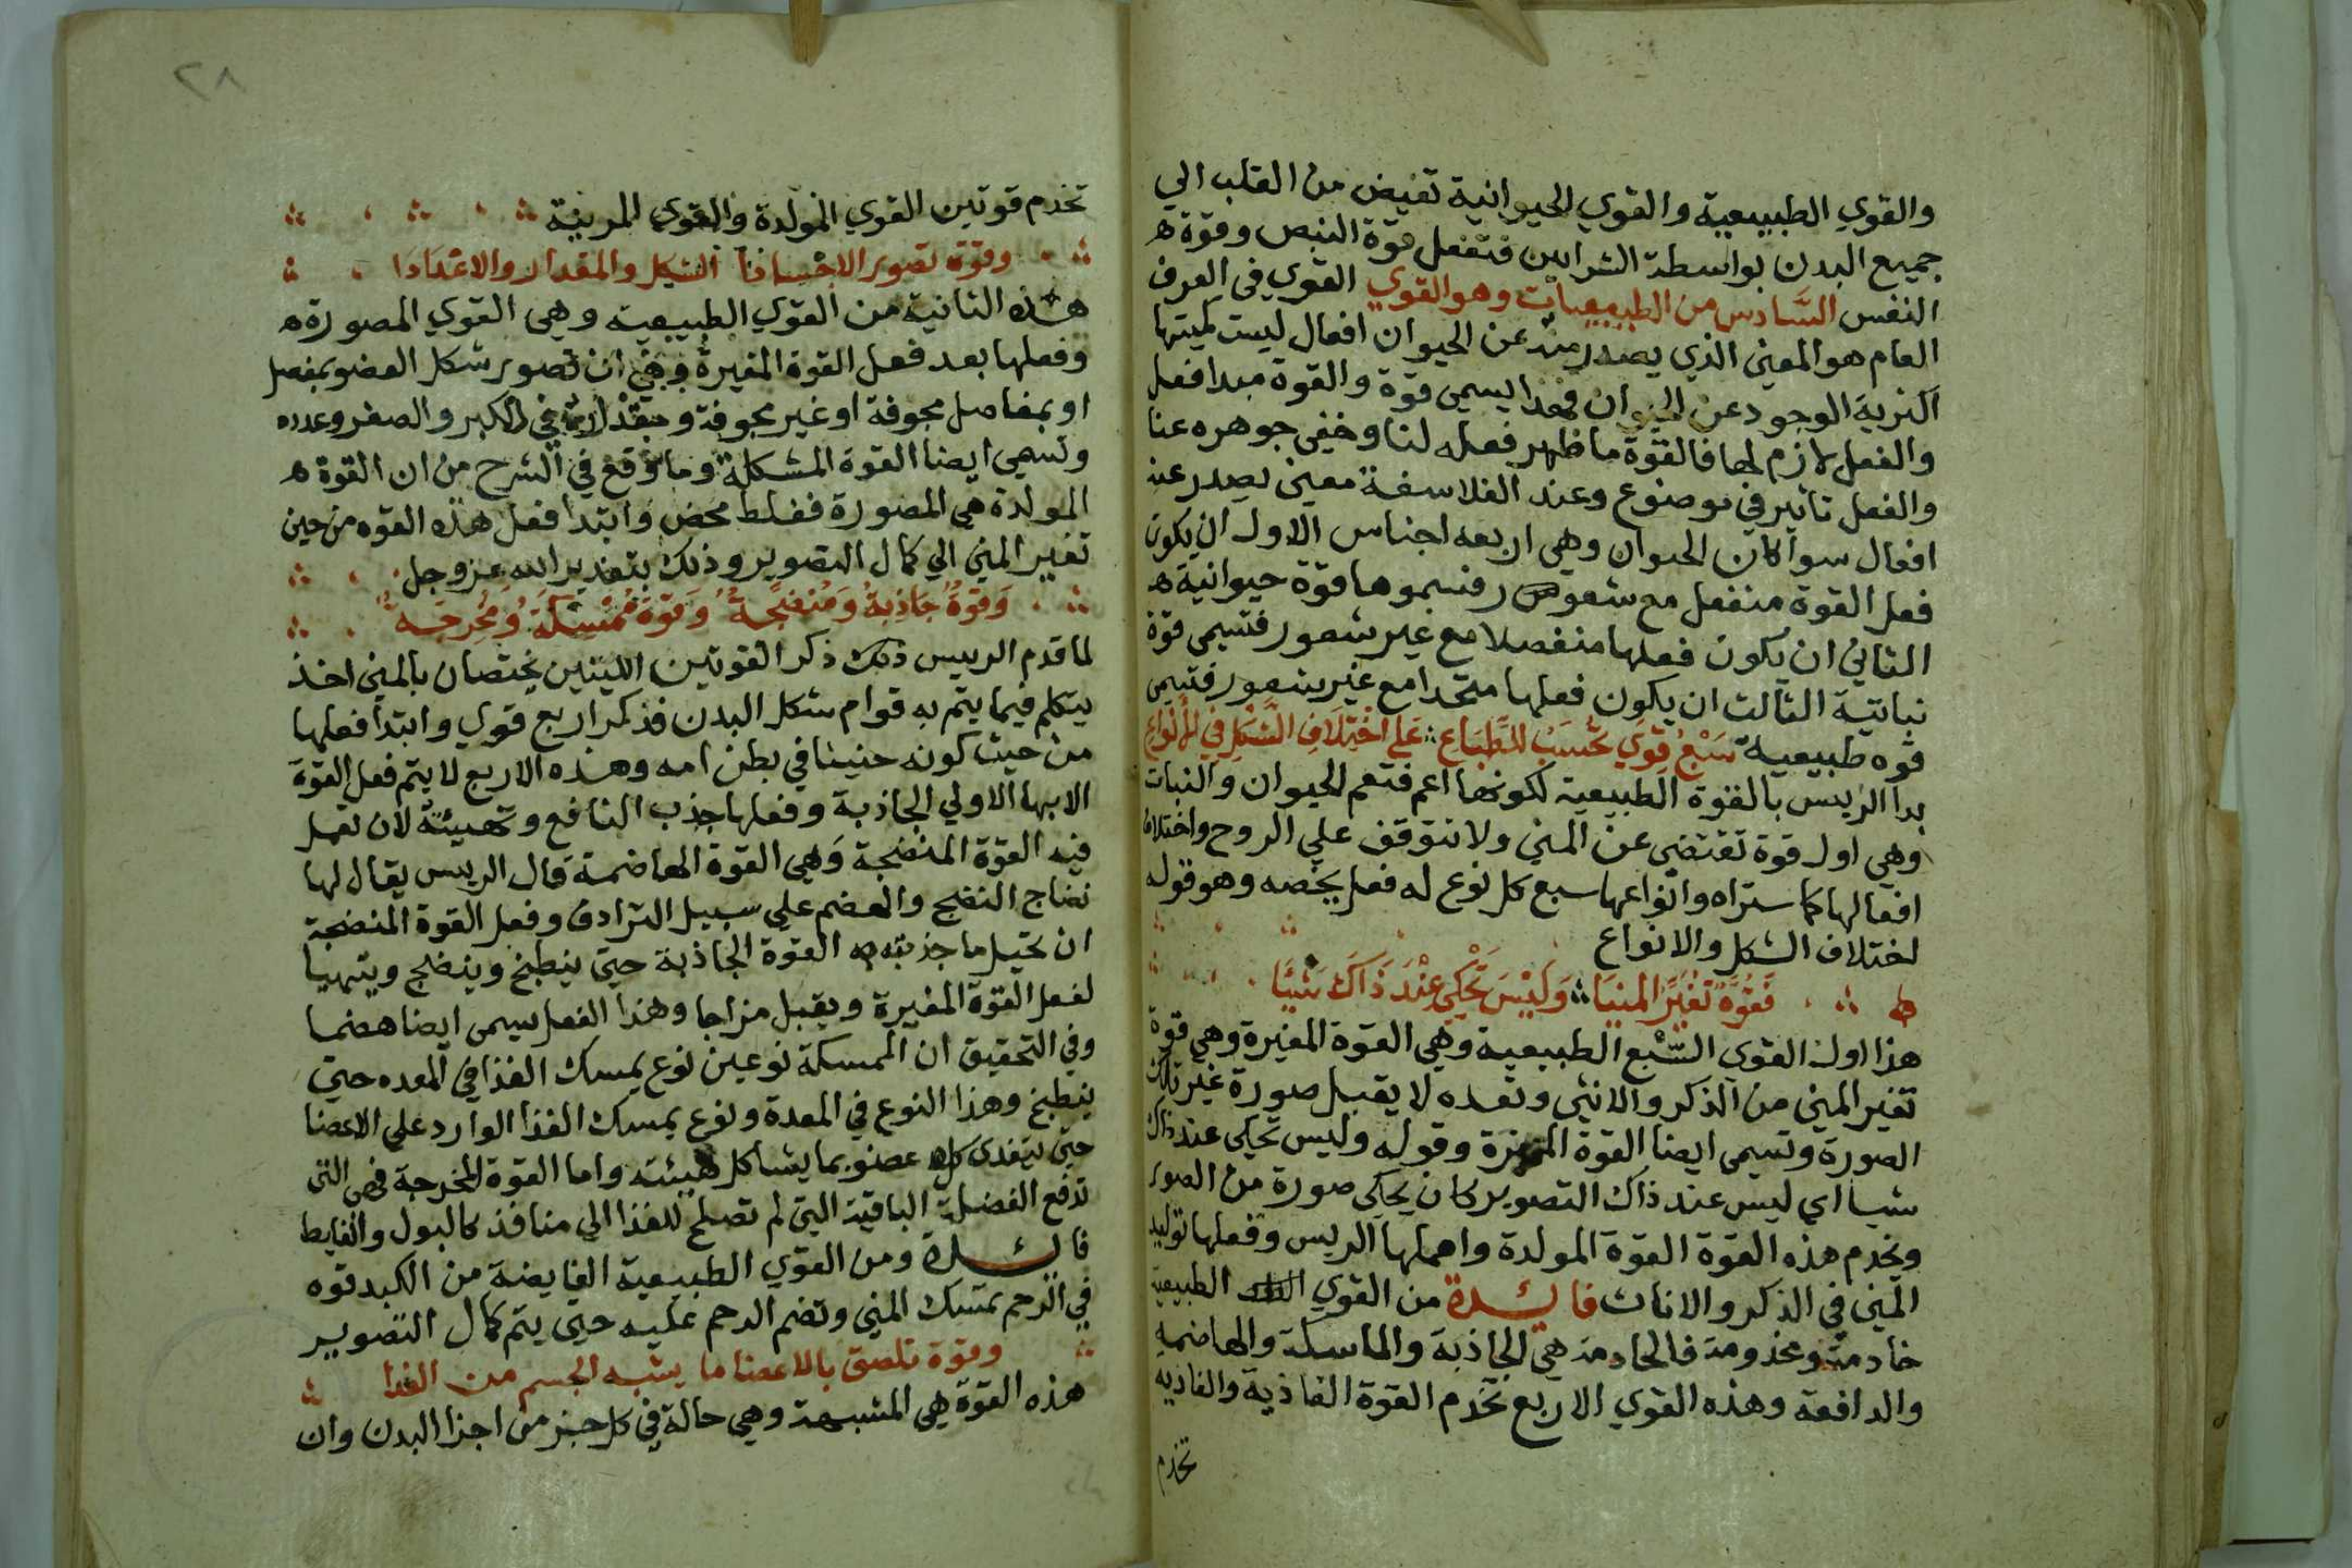 والقوي الطبيعية والقوي الحيوانية تفيض من القلب الي
جميع البدن بواسطة الشرايين فتفعل قوة النبض وقوة
النفس السَّادس من الطبيعيات وهو القوي القوي في العرف
العام هو المعني الذي يصدر منه عن الحيوان افعال ليست كميتها
اكثرية الوجود عن الحيوان فهذا يسمي قوة والقوة مبدا فعل
والفعل لازم لها فالقوة ما ظهر فعله لنا وخفي جوهره عنا
والفعل تاثير في موضوع وعند الفلاسفة معني يصدر عنه
افعال سوا كان الحيوان وهي اربعه اجناس الاول ان يكون
فعل القوة منفعل مع شعور فنسموها قوة حيوانية
الثاني ان يكون فعلها منفصلا مع غير شعور فتسمي قوة
نباتية الثالث ان يكون فعلها متحدا مع غير شعور فتسمي
قوه طبيعية سَبْعُ قِوَي تُحسَبُ للطَّبَاع عَلَي اخْتِلَافِ الشَّكْلِ فِي الأنْوَاع
بدا الرييس بالقوة الطبيعية لكونها اعم فتعم الحيوان والنبات
وهي اول قوة تقتضي عن المني ولا تتوقف علي الروح واختلاف
افعالها كما ستراه وانواعها سبع كل نوع له فعل يخصه وهو قوله
اختلاف الشكل والانواع
فَقُوَّةٌ تُغَيِّرُ المنيَا وَلَيْسَ تَحْكِي عِنْدَ ذَاكَ شَيْيًا
هذا اول القوي السَّبْع الطبيعية وهي القوة المغيرة وهي قوة
تغير المني من الذكر والانثي وتعده لا يقبل صورة غير تلك
الصورة وتسمي ايضا القوة وقوله وليس تحكي عند ذاك
شيا اي ليس عند ذاك التصوير كان يحاكي صورة من الصور
وتخدم هذه القوة القوة المولدة واهملها الريس وفعلها توليد
المني في الذكر والاناث فائدة من القوي الطبيعية
خادمة ومخدومة فالخادمة هي الجاذبة والماسكة والهاضمه
والدافعة وهذه القوي الاربع تخدم القوة الغاذية والغاذيه
تخدم
٢٨
تخدم قوتين القوي المولدة والقوي المربية
وقوة تصور الاجسادا الشكل والمقدار والاعدادا
هذه الثانية من القوي الطبيعية وهي القوي المصورة
وفعلها بعد فعل القوة المغيرة وهي ان تصور شكل العضو بمفصل
او بمفاصل مجوفة او غير مجوفة في الكبر والصغر وعدده
وتسمي ايضا القوة المشكلة وما وقع في الشرح من ان القوة
المولدة هي المصورة فغلط محض وابتدا فعل هذه القوه من حين
تغير المني الي كمال التصوير وذلك بتقدير الله عز وجل
وَقوَّةٌ جَاذِبةٌ وَمُنْضِجَةٌ وَقوَّة مُمْسِكَةٌ وَمُخْرِجَة
لما قدم الرييس ذلك ذكر القوتين الليتين يختصان بالمني اخذ
يتكلم فيما يتم به قوام شكل البدن فذكر اربع قوي وابتدا فعلها
من حيث كونه جنينا في بطن امه وهذه الاربع لا يتم فعل القوة
الا بها الاولي الجاذبة وفعلها جذب النافع وتهييته لان تعمل
فيه القوة المنضجة وَهي القوة الهاضمة قال الرييس يقال لها
نضاج النضج والهضم علي سبيل الترادف وفعل القوة المنضجة
ان تحيل ما جذبته القوة الجاذبة حتي ينطبخ وينضج ويتهيا
لفعل القوة المغيرة ويقبل مزاجا وهذا الفعل يسمي ايضا هضما
وفي التحقيق ان الممسكة نوعين نوع يمسك الغذا في المعده حتي
ينطبخ وهذا النوع في المعدة ونوع يمسك الغذا الوارد علي الاعضا
حتي يتغدي كل عضو بما يشاكل هيئته واما القوة المخرجة فهي التي
تدفع الفضلة الباقية التي لم تصلح للغذا الي منافذ كالبول والغايط
فائدة ومن القوي الطبيعية الفايضة من الكبد قوه
في الرحم تمسك المني وتضم الرحم عليه حتي يتم كمال التصوير
وقوة تلصق بالاعضا ما يشبه الجسم من الغذا
هذه القوة هي المشبهة وهي حالة في كل جزء من اجزا البدن وان